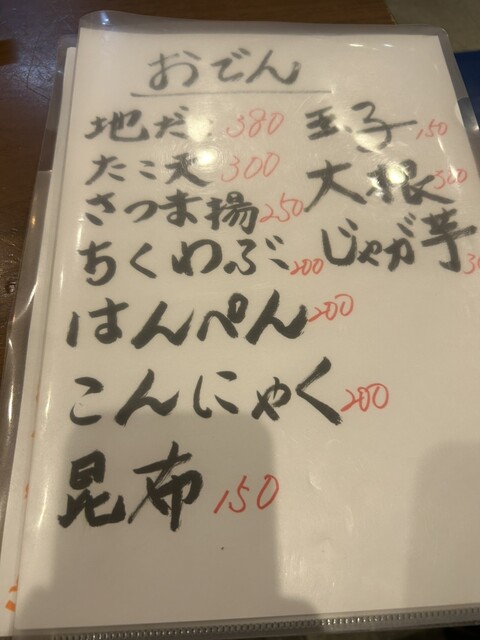 おでん
地だこ 380
たこ天 300
さつま揚 250
ちくわぶ 200
はんぺん 200
こんにゃく 200
昆布 150
玉子 150
大根 300
じゃが芋